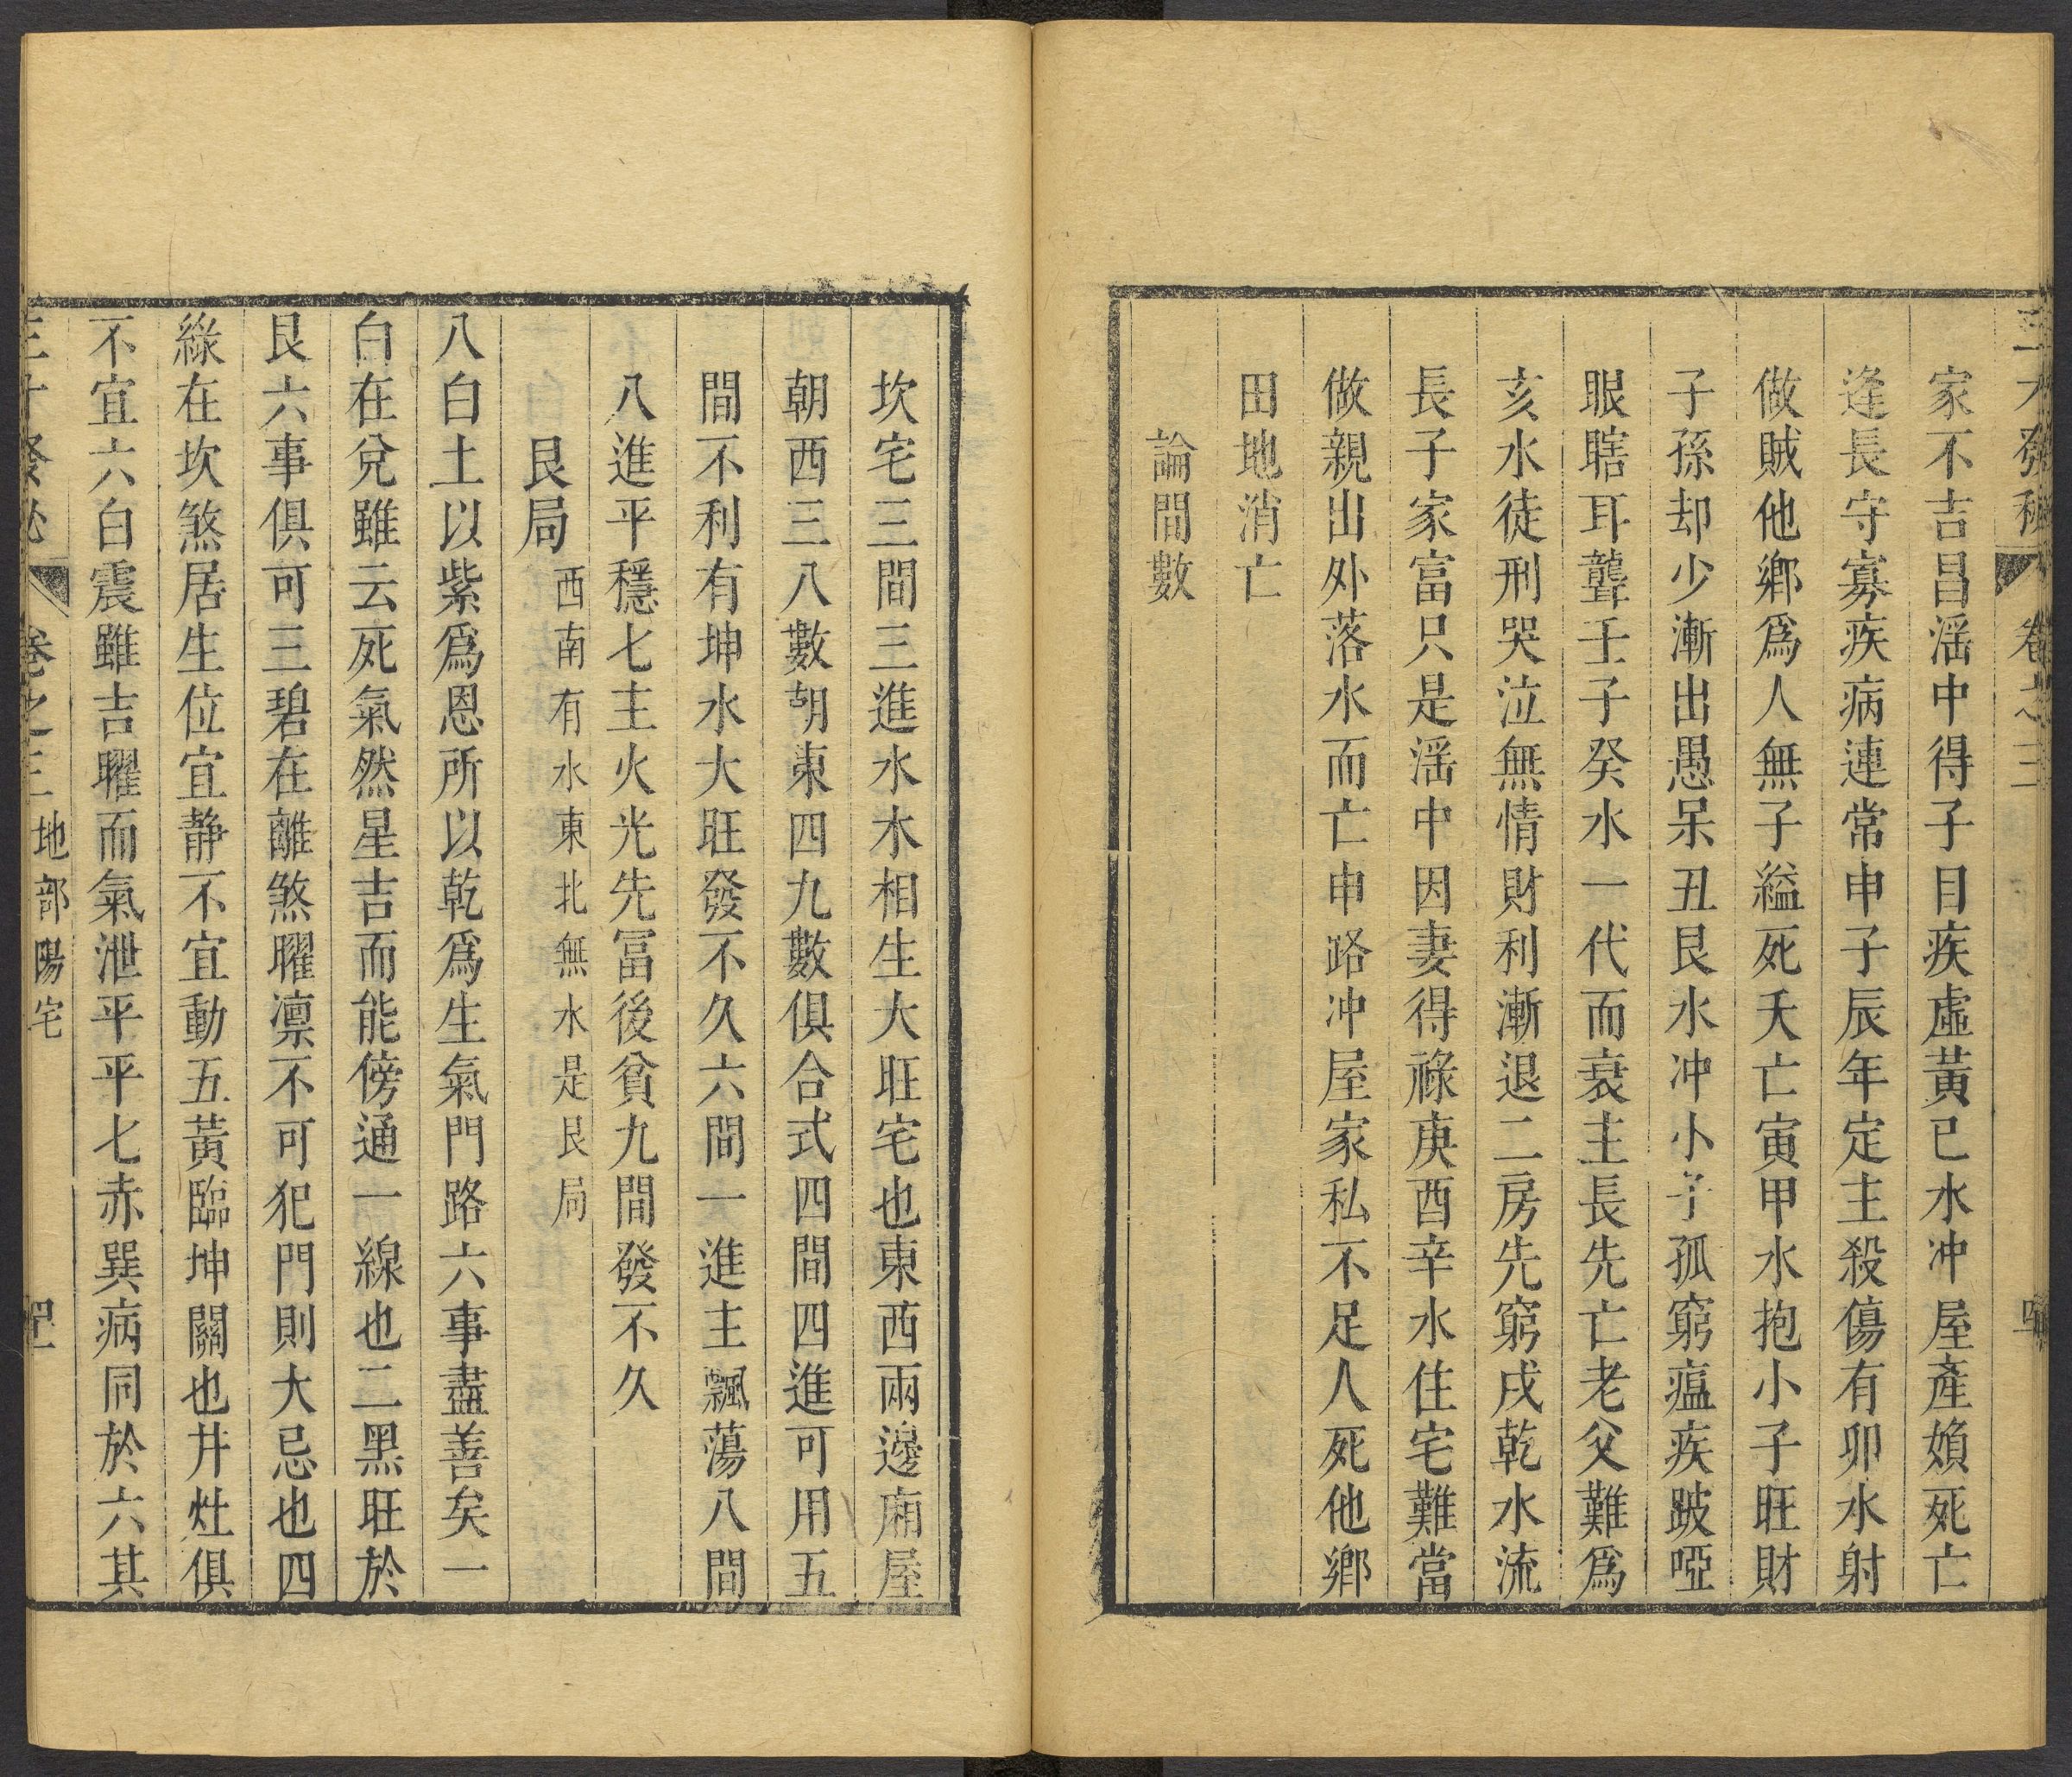 家不吉昌滛中得子目疾虛黃巳水冲屋產娘死亡
逢長守寡疾病連常申子辰年定主殺傷有卯水射
做賊他鄉爲人無子縊死夭亡寅甲水抱小子旺財
子孫却少漸出愚呆丑艮水冲小子孤窮瘟疾跛啞
眼瞎耳聾壬子癸水一代而衰主長先亡老父難爲
亥水徒刑哭泣無情財利漸退二房先窮戌乾水流
長子家富只是滛中因妻得祿庚酉辛水住宅難當
做親出外落水而亡申路冲屋家私不足人死他鄉
田地消亡
論間數
坎宅三間三進水木相生大旺宅也東西兩邊廂屋
朝西三八數朝東四九數俱合式四間四進可用五
間不利有坤水大旺發不久六間一進主飄蕩八間
八進平穩七主火光先冨後貧九間發不久
艮局西南有水東北無水是艮局
八白土以紫爲恩所以乾爲生氣門路六事盡善矣一
白在兌雖云死氣然星吉而能傍通一線也二黑旺於
艮六事俱可三碧在離煞曜凛不可犯門則大忌也四
綠在坎煞居生位宜靜不宜動五黃臨坤關也井灶俱
不宜六白震雖吉曜而氣泄平平七赤巽病同於六其
卷之三 地部陽宅